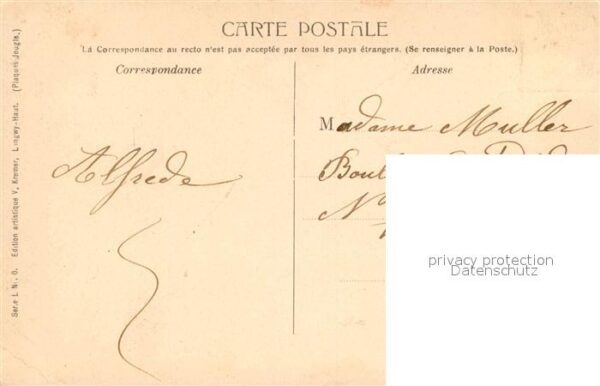 CARTE POSTALE
La Correspondance au recto n'est pas acceptée par tous les pays étrangers. (Se renseigner à la Poste.)
Correspondance
Adresse
Alfrede
Madame Muller
Boul
N
privacy protection
Datenschutz
Serie L Nr. 0. Edition artistique V. Kremer, Longwy-Haut. (Plaques Jougla.)